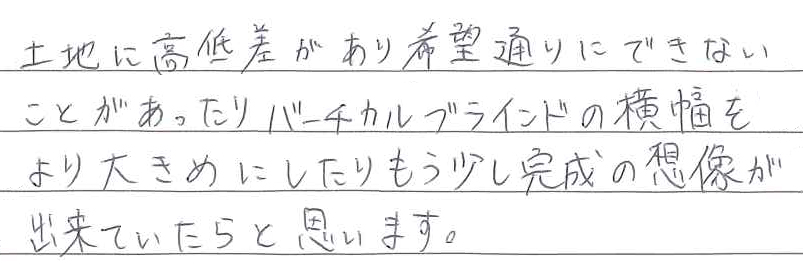 土地に高低差があり希望通りにできない
ことがあったりバーチカルブラインドの横幅を
より大きめにしたりもう少し完成の想像が
出来ていたらと思います。